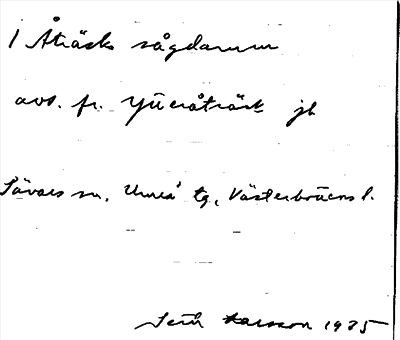 1 Åträsk sågdamm
avs. fr. Ytteråträsk jh
Sävars sn. Umeå tg, Västerbottens l.
Seth Larsson 1925